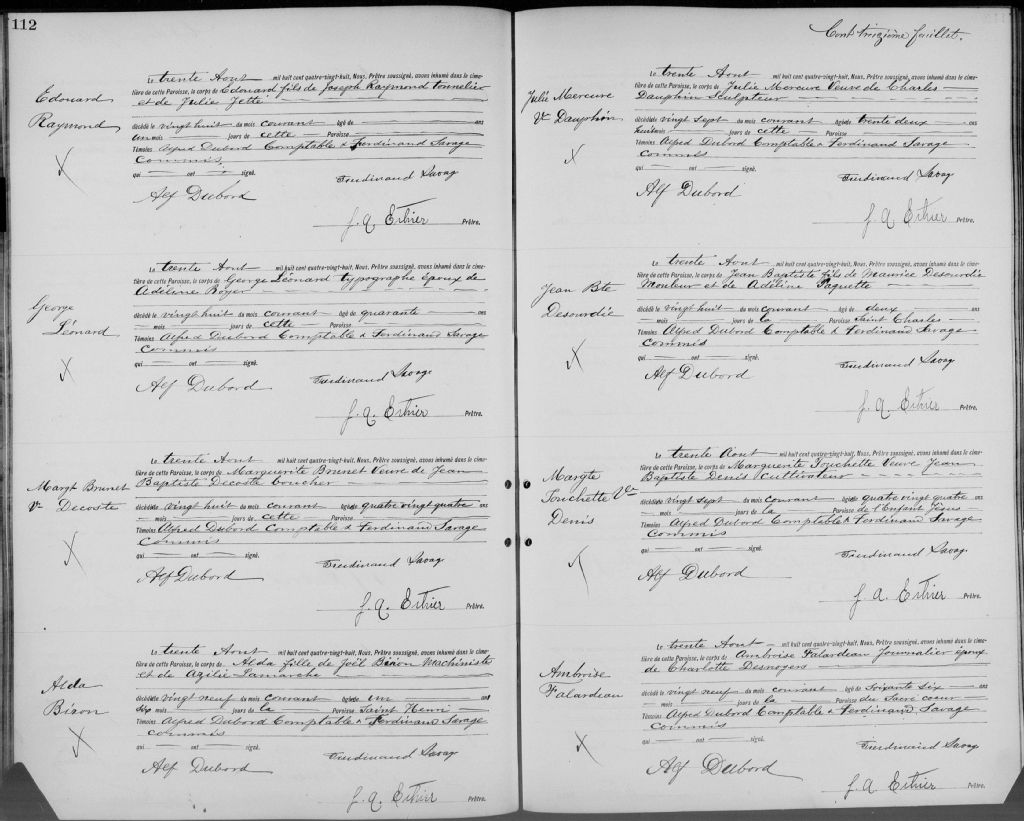 112
Edouard
Raymond
Le trente Aout mil huit cent quatre-vingt-huit, Nous, Prêtre soussigné, avons inhumé dans le cime-
tière de cette Paroisse, le corps de Edouard fils de Joseph Raymond tonnelier
et de Julie Jette
décédé le vingt huit du mois courant âgé de ans
un mois jours de cette Paroisse
Témoins Alfred Dubord Comptable & Ferdinand Savage
Commis
qui ont signé.
Ferdinand Savag
Alf Dubord
J. A. Ethier Prêtre.
George
Léonard
Le trente Aout mil huit cent quatre-vingt-huit, Nous, Prêtre soussigné, avons inhumé dans le cime-
tière de cette Paroisse, le corps de George Léonard typographe époux de
Adéline Boyer
décédé le vingt huit du mois courant âgé de quarante ans
mois jours de cette Paroisse
Témoins Alfred Dubord Comptable & Ferdinand Savage
Commis
qui ont signé.
Ferdinand Savag
Alf Dubord
J. A. Ethier Prêtre.
Margt Brunet
Ve Decoste
Le trente Aout mil huit cent quatre-vingt-huit, Nous, Prêtre soussigné, avons inhumé dans le cime-
tière de cette Paroisse, le corps de Marguerite Brunet Veuve de Jean
Baptiste Decoste boucher
décédée vingt huit du mois courant âgée quatre vingt quatre ans
mois jours de cette Paroisse
Témoins Alfred Dubord Comptable & Ferdinand Savage
Commis
qui ont signé.
Ferdinand Savag
Alf Dubord
J. A. Ethier Prêtre.
Alda
Bizon
Le trente Aout mil huit cent quatre-vingt-huit, Nous, Prêtre soussigné, avons inhumé dans le cime-
tière de cette Paroisse, le corps de Alda fille de Joël Bizon Machiniste
et de Azilie Lamarche
décédée vingt neuf du mois courant âgée un ans
Six mois jours de la Paroisse Saint Henri
Témoins Alfred Dubord Comptable & Ferdinand Savage
Commis
qui ont signé.
Ferdinand Savag
Alf Dubord
J. A. Ethier Prêtre.
Cent treizième feuillet.
Julie Mercure
Ve Dauphin
Le trente Aout mil huit cent quatre-vingt-huit, Nous, Prêtre soussigné, avons inhumé dans le cime-
tière de cette Paroisse, le corps de Julie Mercure Veuve de Charles
Dauphin Sculpteur
décédée vingt sept du mois courant âgée trente deux ans
huit mois jours de cette Paroisse
Témoins Alfred Dubord Comptable & Ferdinand Savage
Commis
qui ont signé.
Ferdinand Savag
Alf Dubord
J. A. Ethier Prêtre.
Jean Bte
Desourdie
Le trente Aout mil huit cent quatre-vingt-huit, Nous, Prêtre soussigné, avons inhumé dans le cime-
tière de cette Paroisse, le corps de Jean Baptiste fils de Maurice Desourdie
Mouleur et de Adéline Paquette
décédé le vingt huit du mois courant âgé de deux ans
mois jours de la Paroisse Saint Charles
Témoins Alfred Dubord Comptable & Ferdinand Savage
Commis
qui ont signé.
Ferdinand Savag
Alf Dubord
J. A. Ethier Prêtre.
Margte
Touchette Vve
Denis
Le trente Aout mil huit cent quatre-vingt-huit, Nous, Prêtre soussigné, avons inhumé dans le cime-
tière de cette Paroisse, le corps de Marguerite Touchette Veuve Jean
Baptiste Denis Cultivateur
décédée vingt sept du mois courant âgée quatre vingt quatre ans
mois jours de la Paroisse de l'Enfant Jésus
Témoins Alfred Dubord Comptable & Ferdinand Savage
Commis
qui ont signé.
Ferdinand Savag
Alf Dubord
J. A. Ethier Prêtre.
Ambroise
Falardeau
Le trente Aout mil huit cent quatre-vingt-huit, Nous, Prêtre soussigné, avons inhumé dans le cime-
tière de cette Paroisse, le corps de Ambroise Falardeau Journalier époux
de Charlotte Desnoyers
décédé le vingt neuf du mois courant âgé de Soixante Six ans
mois jours de la Paroisse du Sacré coeur
Témoins Alfred Dubord Comptable & Ferdinand Savage
Commis
qui ont signé.
Ferdinand Savag
Alf Dubord
J. A. Ethier Prêtre.